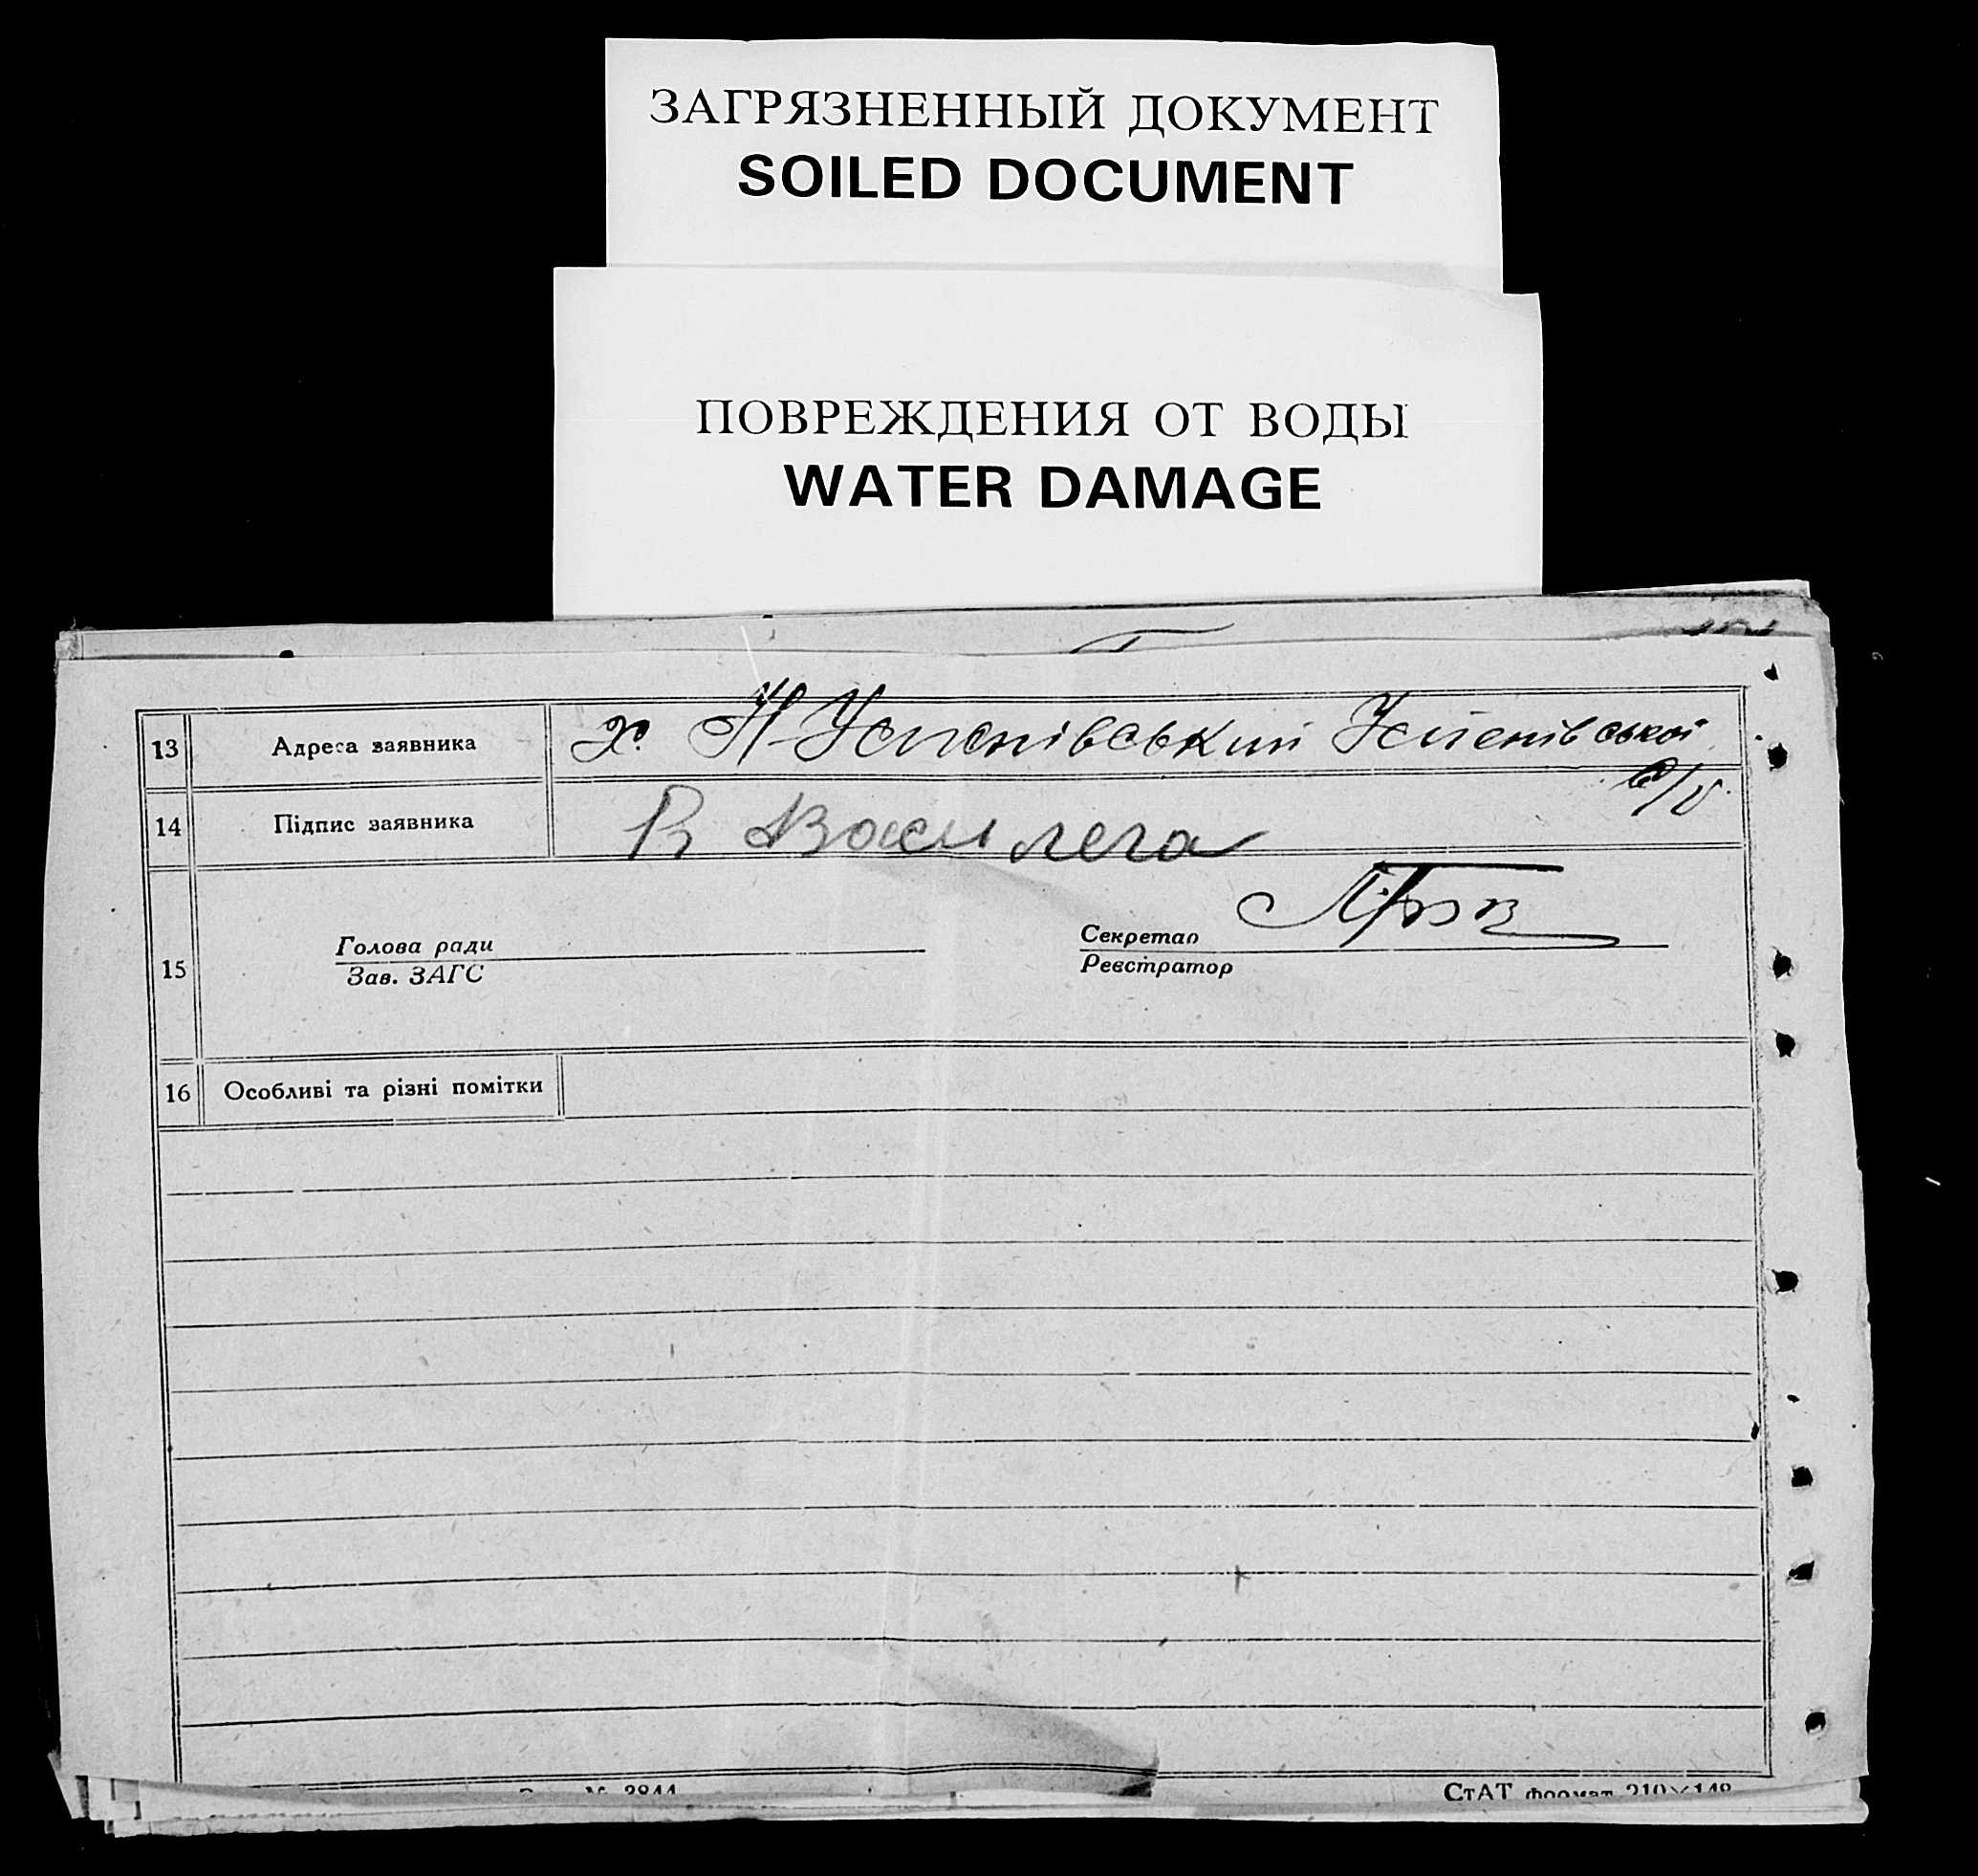 ЗАГРЯЗНЕННЫЙ ДОКУМЕНТ
SOILED DOCUMENT
ПОВРЕЖДЕНИЯ ОТ ВОДЫ
WATER DAMAGE
13 Адреса заявника х. Н-Успенівський Успенівської
с/р
14 Підпис заявника В Василега
15 Голова ради Секретар
Зав. ЗАГС Реєстратор
16 Особливі та різні помітки
№ 3844 СтАТ формат 210×148